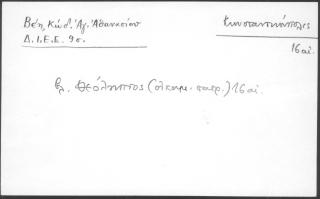 Βέη, Κώδ. Ἁγ. Ἀθανασίου
Δ.Ι.Ε.Ε. 9ος.
Κωνσταντινόπολις
16 αἰ.
Βλ. Θεόληπτος (οἰκουμ. πατρ.) 16 αἰ.